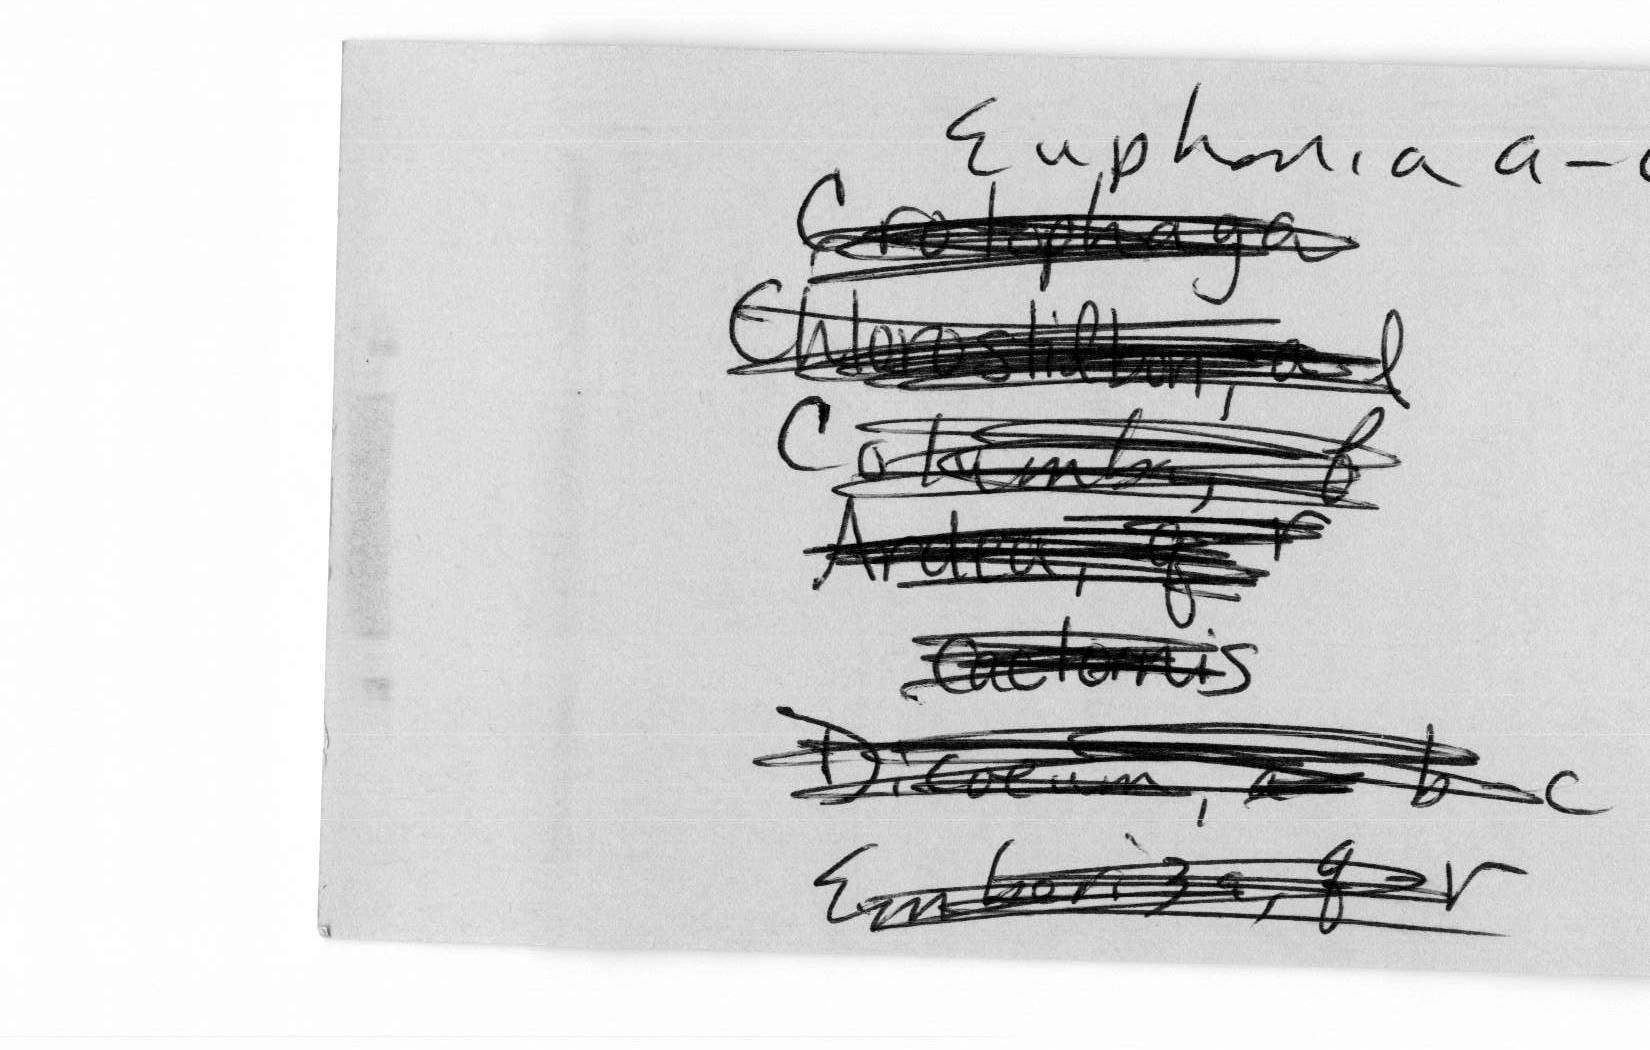 Euphonia a-
Crotophaga
Chlorostilbon, a-l
Columba, f
Ardea, q-r
Cactornis
Dicaeum, b-c
Emberiza, q-r